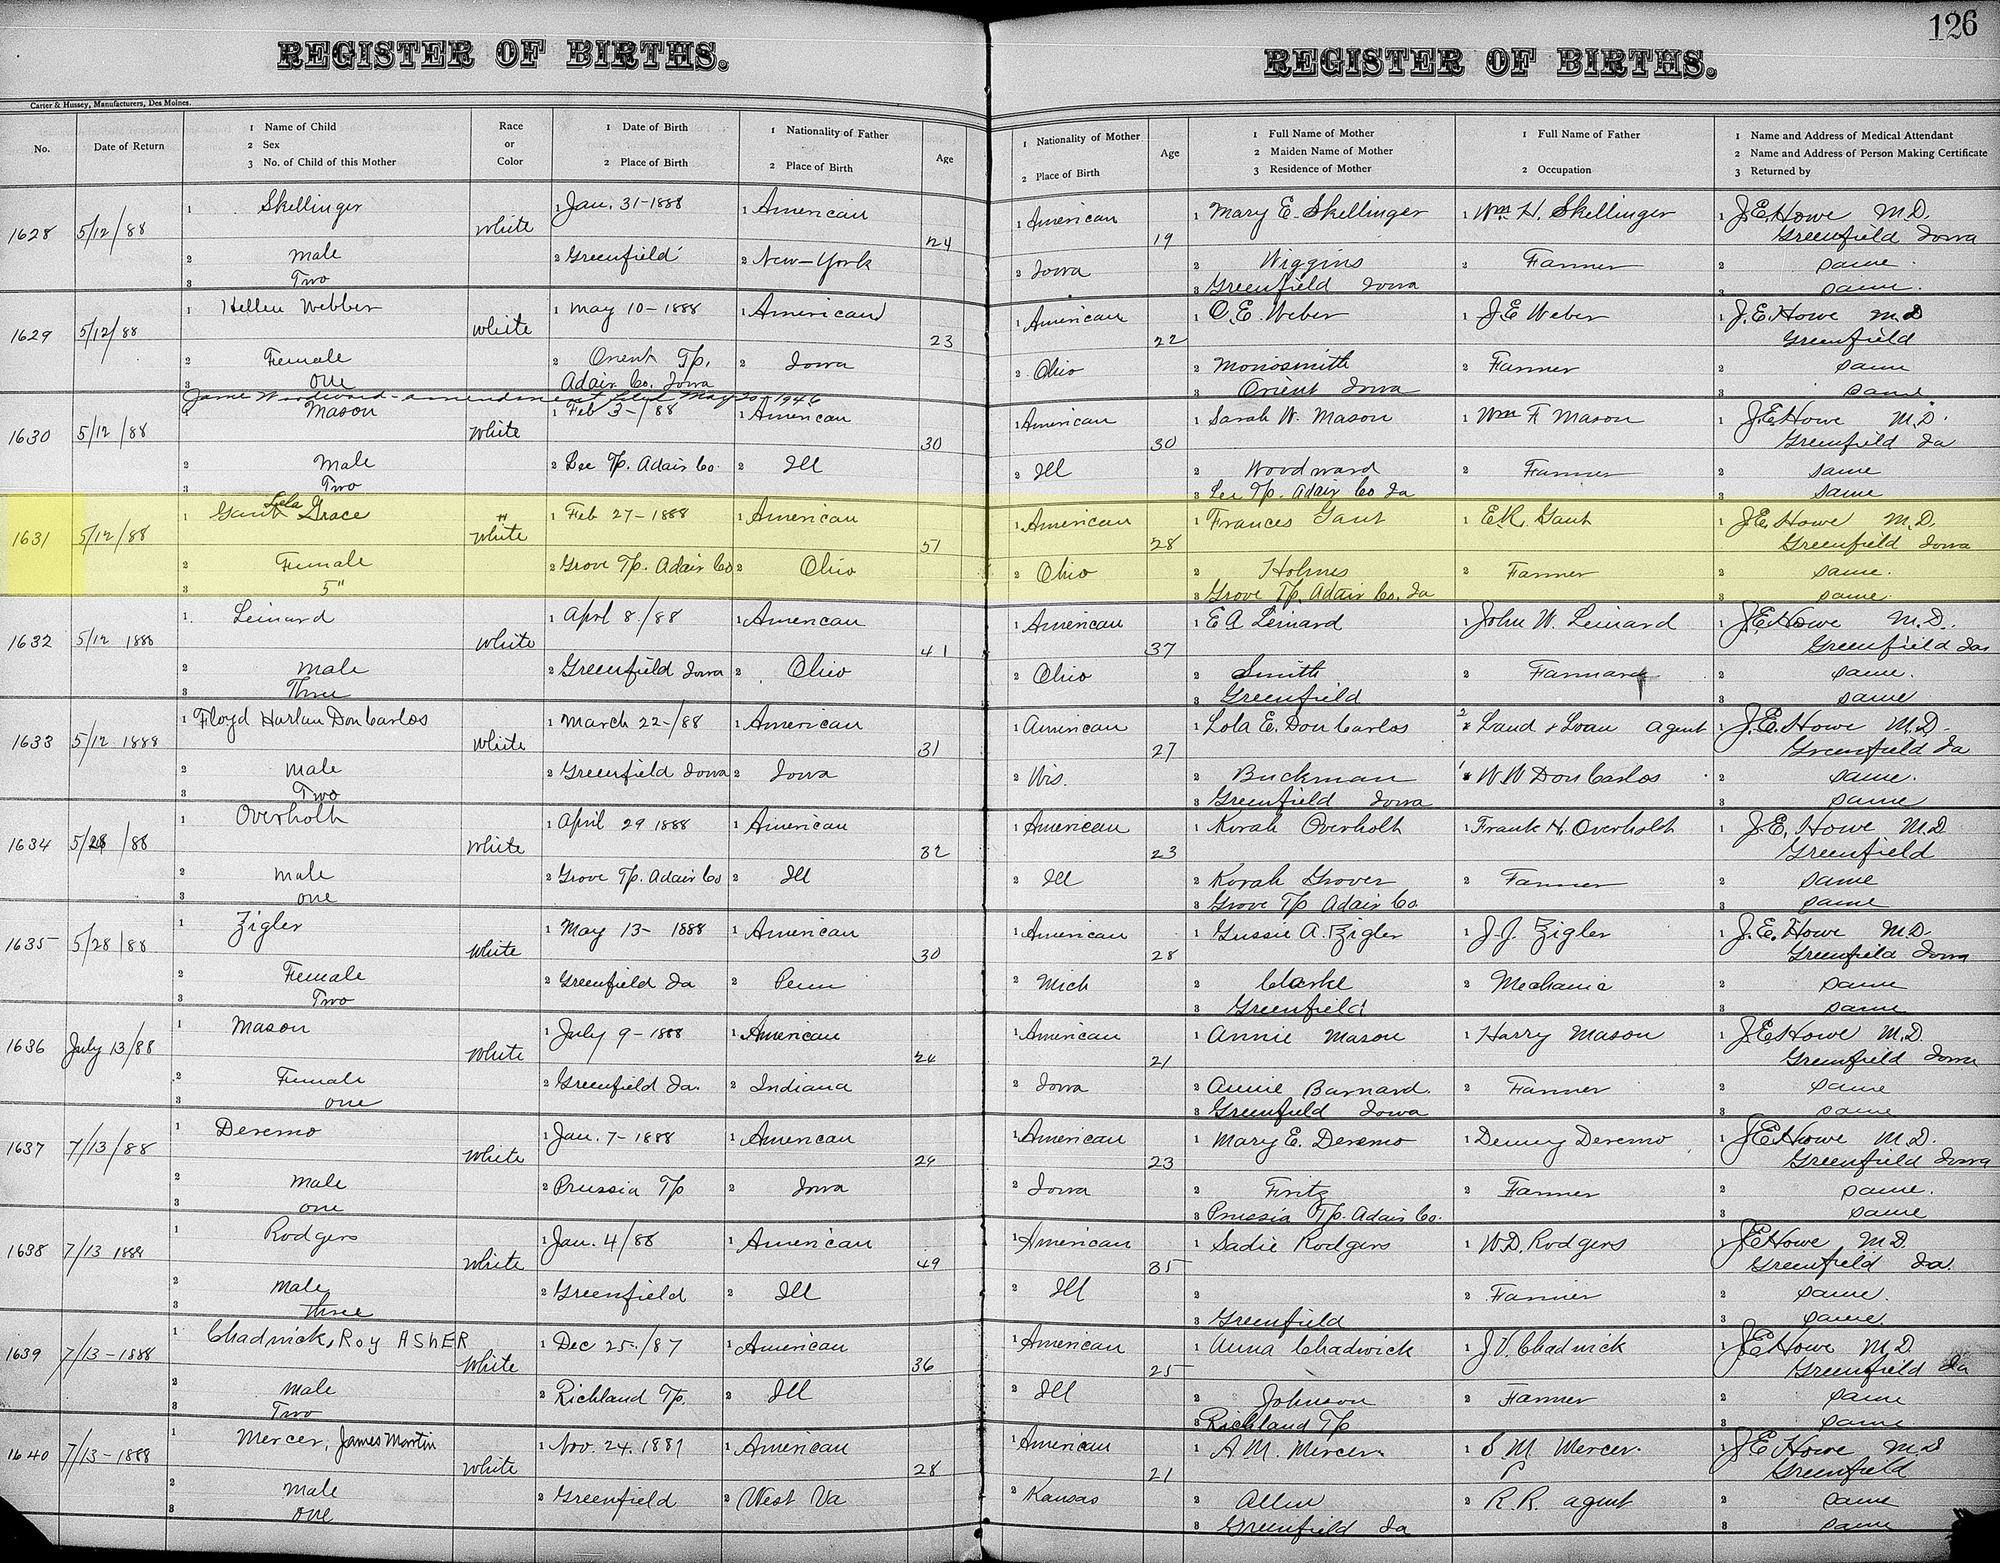 126
REGISTER OF BIRTHS. REGISTER OF BIRTHS.
Carter & Hussey, Manufacturers, Des Moines.
No. | Date of Return | 1 Name of Child 2 Sex 3 No. of Child of this Mother | Race or Color | 1 Date of Birth 2 Place of Birth | 1 Nationality of Father 2 Place of Birth | Age | 1 Nationality of Mother 2 Place of Birth | Age | 1 Full Name of Mother 2 Maiden Name of Mother 3 Residence of Mother | 1 Full Name of Father 2 Occupation | 1 Name and Address of Medical Attendant 2 Name and Address of Person Making Certificate 3 Returned by
1 Skellinger 1 Jan. 31-1888 1 American 1 American 1 Mary E. Skellinger 1 Wm H. Skellinger 1 J.E. Howe M.D.
1628 5/12/88 White 24 19 Greenfield Iowa
2 male 2 Greenfield 2 New-York 2 Iowa 2 Wiggins 2 Farmer 2 same.
3 Two 3 Greenfield Iowa 3 same.
1 Hellen Webber 1 May 10-1888 1 American 1 American 1 O.E. Weber 1 J.E Weber 1 J.E. Howe M.D
1629 5/12/88 White 23 22 Greenfield
2 Female 2 Orient Tp. 2 Iowa 2 Ohio 2 Monosmith 2 Farmer 2 same
3 one Adair Co. Iowa 3 Orient Iowa 3 same
James Woodward - amendment filed May 20-1946
1 Mason 1 Feb 3-/88 1 American 1 American 1 Sarah W. Mason 1 Wm F Mason 1 J.E. Howe M.D.
1630 5/12/88 White 30 30 Greenfield Ia
2 Male 2 Lee Tp. Adair Co. 2 Ill 2 Ill 2 Woodward 2 Farmer 2 same
3 Two 3 Lee Tp. Adair Co Ia 3 same
1 Gant Lela Grace 1 Feb 27-1888 1 American 1 American 1 Frances Gant 1 E.R. Gant 1 J.E. Howe M.D.
1631 5/12/88 " White 51 28 Greenfield Iowa
2 Female 2 Grove Tp. Adair Co 2 Ohio 2 Ohio 2 Holmes 2 Farmer 2 same.
3 5" 3 Grove Tp. Adair Co. Ia 3 same.
1. Leinard 1 April 8/88 1 American 1 American 1 E A Leinard 1 John W. Leinard 1 J.E. Howe M.D.
1632 5/12 1888 White 41 37 Greenfield Ia
2 male 2 Greenfield Iowa 2 Ohio 2 Ohio 2 Smith 2 2 same.
3 Three 3 Greenfield 3 same
1 Floyd Harlan Don Carlos 1 March 22-/88 1 American 1 American 1 Lola E. Don Carlos 2 Land & Loan agent 1 J.E. Howe M.D.
1633 5/12 1888 White 31 27 Greenfield Ia
2 male 2 Greenfield Iowa 2 Iowa 2 Wis. 2 Buckman 1 W.W Don Carlos 2 same.
3 Two 3 Greenfield Iowa 3 same
1 Overholt 1 April 29 1888 1 American 1 American 1 Korah Overholt 1 Frank H. Overholdt 1 J.E. Howe M.D
1634 5/28 /88 White 32 23 Greenfield
2 male 2 Grove Tp. Adair Co 2 Ill 2 Ill 2 Korah Grover 2 Farmer 2 same
3 one 3 Grove Tp Adair Co. 3 same
1 Zigler 1 May 13- 1888 1 American 1 American 1 Gussie A. Zigler 1 J.J. Zigler 1 J.E. Howe M.D.
1635 5/28/88 White 30 28 Greenfield Iowa
2 Female 2 Greenfield Ia 2 Penn 2 Mich 2 Clarke 2 Mechanic 2 same
3 Two 3 Greenfield 3 same
1 Mason 1 July 9-1888 1 American 1 American 1 Annie Mason 1 Harry Mason 1 J.E. Howe M.D.
1636 July 13/88 White 21 Greenfield Iowa
2 Female 2 Greenfield Ia. 2 Indiana 2 Iowa 2 Annie Barnard. 2 Farmer 2 same
3 one 3 Greenfield Iowa 3 same
1 Deremo 1 Jan. 7-1888 1 American 1 American 1 Mary E. Deremo 1 Denny Deremo 1 J.E. Howe M.D.
1637 7/13/88 White 29 23 Greenfield Iowa
2 male 2 Prussia Tp 2 Iowa 2 Iowa 2 Fritz 2 Farmer 2 same.
3 one 3 Prussia Tp. Adair Co. 3 same
1 Rodgers 1 Jan. 4/88 1 American 1 American 1 Sadie Rodgers 1 W.D. Rodgers 1 J.E. Howe M.D.
1638 7/13 1888 White 49 35 Greenfield Ia.
2 male 2 Greenfield 2 Ill 2 Ill 2 2 Farmer 2 same.
3 Three Greenfield 3 same.
1 Chadwick, Roy ASHER 1 Dec 25-/87 1 American 1 American 1 Anna Chadwick 1 J.V. Chadwick 1 J.E. Howe M.D
1639 7/13-1888 White 36 25 Greenfield Ia
2 male 2 Richland Tp. 2 Ill 2 Ill 2 Johnson 2 Farmer 2 same
3 Two 3 Richland Tp 3 same
1 Mercer, James Martin 1 Nov. 24. 1887 1 American 1 American 1 A.M. Mercer. 1 S M Mercer. 1 J.E Howe M.D
1640 7/13-1888 White 28 21 Greenfield
2 male 2 Greenfield 2 West Va 2 Kansas 2 Allen 2 R.R. agent 2 same
3 one 3 Greenfield Ia 3 same